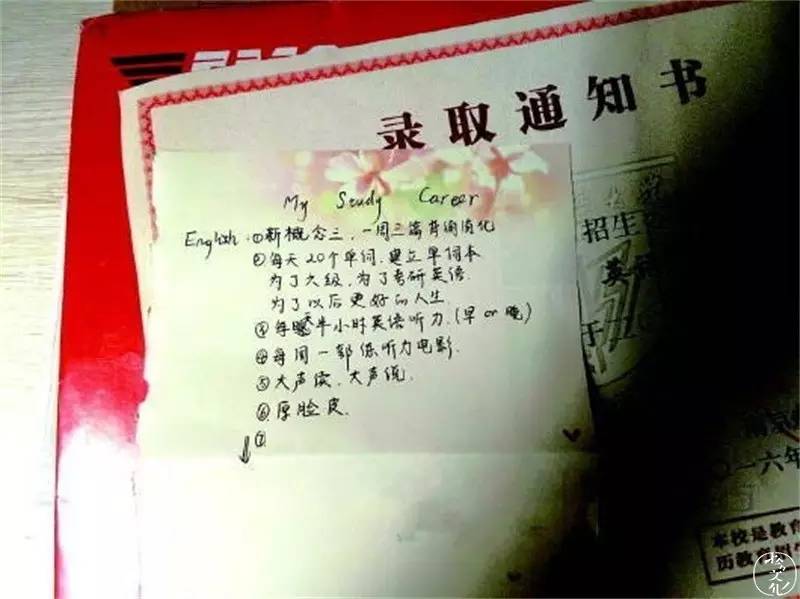 录取通知书
My Study Career
English: ①新概念三，一周三篇背诵消化
②每天20个单词，建立单词本
为了六级，为了考研英语
为了以后更好的人生.
③每天半小时英语听力.(早 or 晚)
④每周一部练听力电影.
⑤大声读、大声说.
⑥厚脸皮.
⑦
招生
英
于二〇
〇一六年
本校是教育
历教育